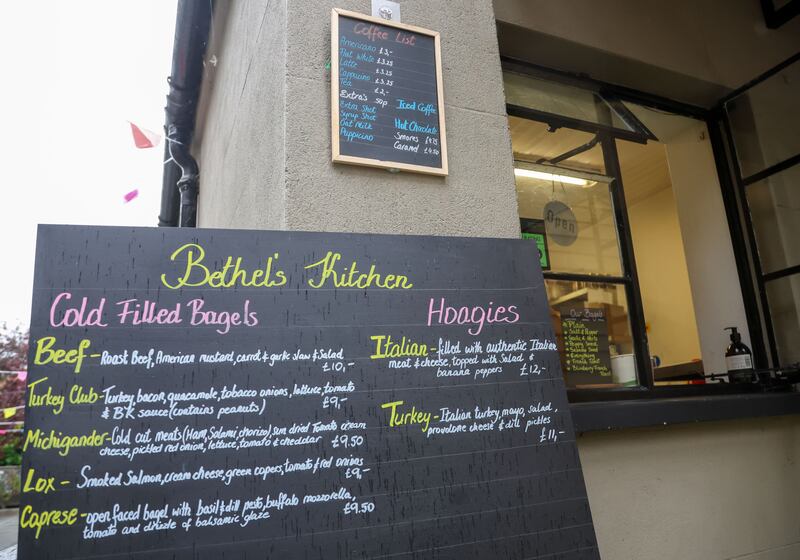 Coffee List
Americano £3,-
Flat White £3.25
Latte £3.25
Cappucino £3.25
Tea £2,-
Extra's 50p
Extra Shot
Syrup Shot
Oat Milk
Puppicino
Iced Coffee
Hot Chocolate
Smores £4.75
Caramel £4.50
Open
Our Bagels
Plain
Everything
Bethel's Kitchen
Cold Filled Bagels
Beef - Roast Beef, American mustard, carrot & garlic slaw & Salad
£10,-
Turkey Club - Turkey, bacon, guacamole, tobacco onions, lettuce, tomato
& B.K sauce (contains peanuts) £9,-
Michigander - Cold cut meats (Ham, Salami, chorizo) sun dried Tomato cream
cheese, pickled red onion, lettuce, tomato & cheddar £9.50
Lox - Smoked Salmon, cream cheese, green capers, tomato & red onions
£9,-
Caprese - open faced bagel with basil & dill pesto, buffalo mozzerella,
tomato and drizzle of balsamic glaze £9.50
Hoagies
Italian - filled with authentic Italian
meat & cheese, topped with Salad &
banana peppers £12,-
Turkey - Italian turkey, mayo, salad,
provolone cheese & dill pickles
£11,-